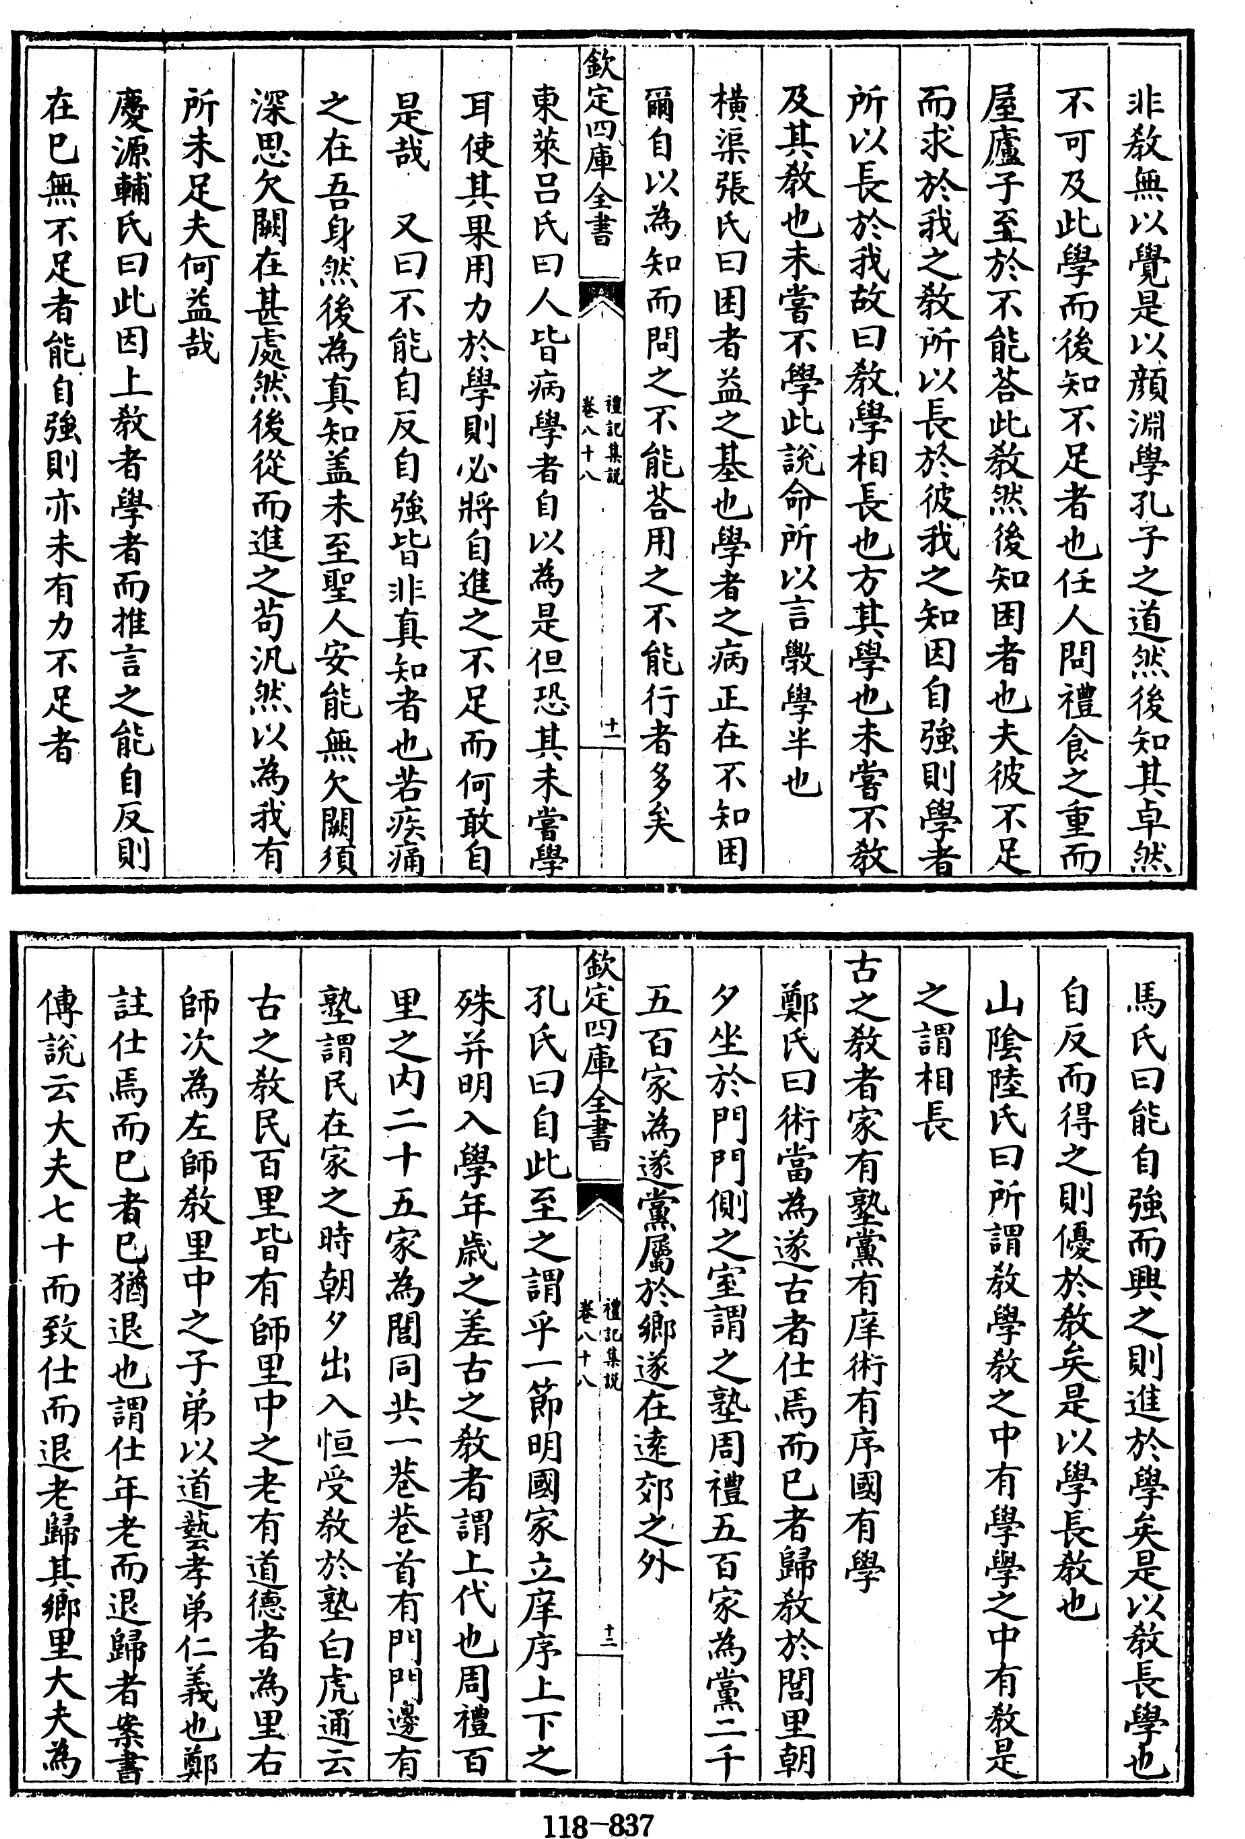 非教無以覺是以顔淵學孔子之道然後知其卓然
不可及此學而後知不足者也任人問禮食之重而
屋廬子至於不能荅此教然後知困者也夫彼不足
而求於我之教所以長於彼我之知困自強則學者
所以長於我故曰教學相長也方其學也未嘗不教
及其教也未嘗不學此說命所以言斆學半也
横渠張氏曰困者益之基也學者之病正在不知困
爾自以為知而問之不能荅用之不能行者多矣
欽定四庫全書
禮記集說
卷八十八
十一
東萊呂氏曰人皆病學者自以為是但恐其未嘗學
耳使其果用力於學則必將自進之不足而何敢自
是哉　又曰不能自反自強皆非真知者也若疾痛
之在吾身然後為真知盖未至聖人安能無欠闕須
深思欠闕在甚處然後從而進之茍汎然以為我有
所未足夫何益哉
慶源輔氏曰此因上教者學者而推言之能自反則
在已無不足者能自強則亦未有力不足者
馬氏曰能自強而興之則進於學矣是以教長學也
自反而得之則優於教矣是以學長教也
山隂陸氏曰所謂教學教之中有學學之中有教是
之謂相長
古之教者家有塾黨有庠術有序國有學
鄭氏曰術當為遂古者仕焉而已者歸教於閭里朝
夕坐於門門側之室謂之塾周禮五百家為黨二千
五百家為遂黨屬於鄉遂在逺郊之外
欽定四庫全書
禮記集說
卷八十八
十二
孔氏曰自此至之謂乎一節明國家立庠序上下之
殊并明入學年歲之差古之教者謂上代也周禮百
里之内二十五家為閭同共一巷巷首有門門邊有
塾謂民在家之時朝夕出入恒受教於塾白虎通云
古之教民百里皆有師里中之老有道德者為里右
師次為左師教里中之子弟以道藝孝弟仁義也鄭
註仕焉而已者已猶退也謂仕年老而退歸者案書
傳說云大夫七十而致仕而退老歸其鄉里大夫為
118-837